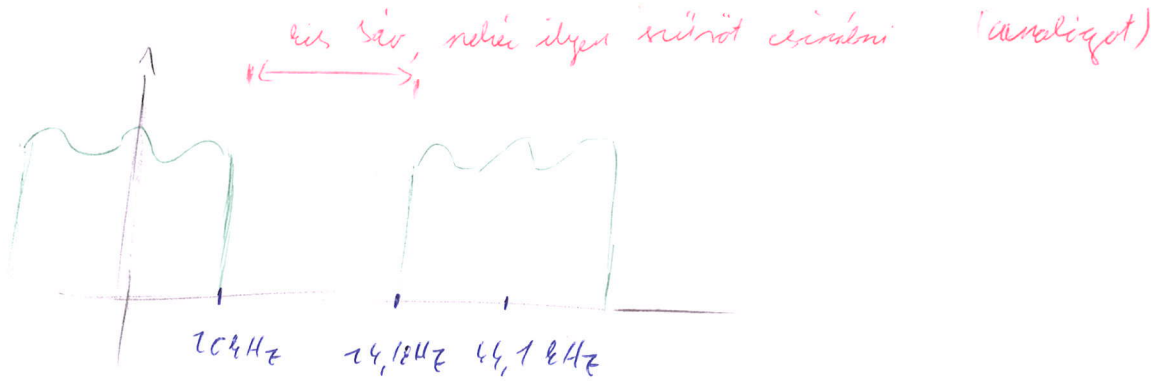 kis sáv, nehéz ilyen szűrőt csinálni (analógot)
20 kHz 24,1 kHz 44,1 kHz